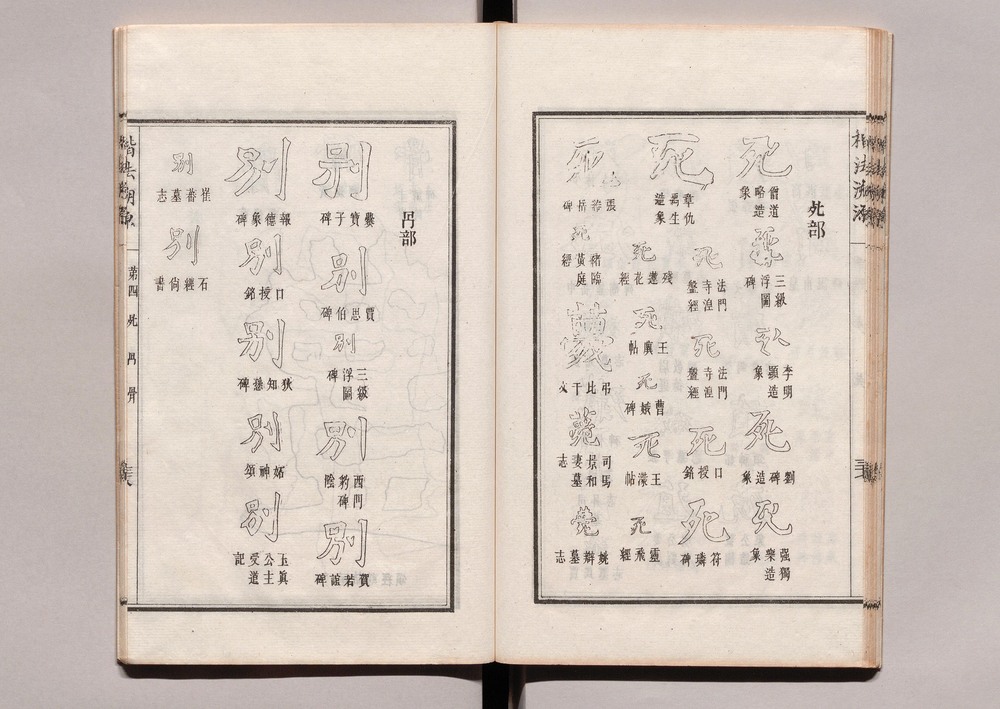 楷法溯源
死部
死
僧道略造象
三級浮圖碑
李明顯造象
死
劉碑造象
死
强獨樂造象
死
章仇禹生造象
死
法門寺湼盤經
死
法門寺湼盤經
死
口授銘
死
符璘碑
死
殘蓮花經
死
王廙帖
死
曹娥碑
死
王濛帖
死
靈飛經
張岳碑
死
豬臨黃庭經
薨
弔比干文
薨
司馬景和妻墓志
薨
姚辯墓志
冎部
別
爨寶子碑
別
賈思伯碑
別
三級浮圖碑
別
西門豹碑陰
別
賀若誼碑
別
報德象碑
別
口授銘
別
狄知愻碑
別
妬神頌
別
玉眞公主受道記
別
崔蕃墓志
別
石經尙書
楷法溯源
第四 死 冎 骨